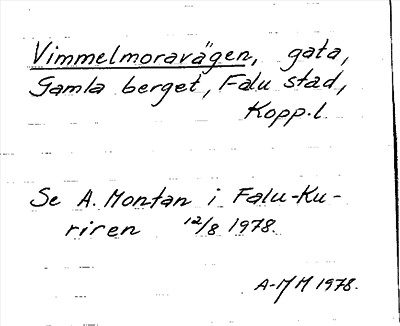 Vimmelmoravägen, gata,
Gamla berget, Falu stad,
Kopp.l.
Se A. Montan i Falu-Ku-
riren 12/8 1978.
A-MM 1978.